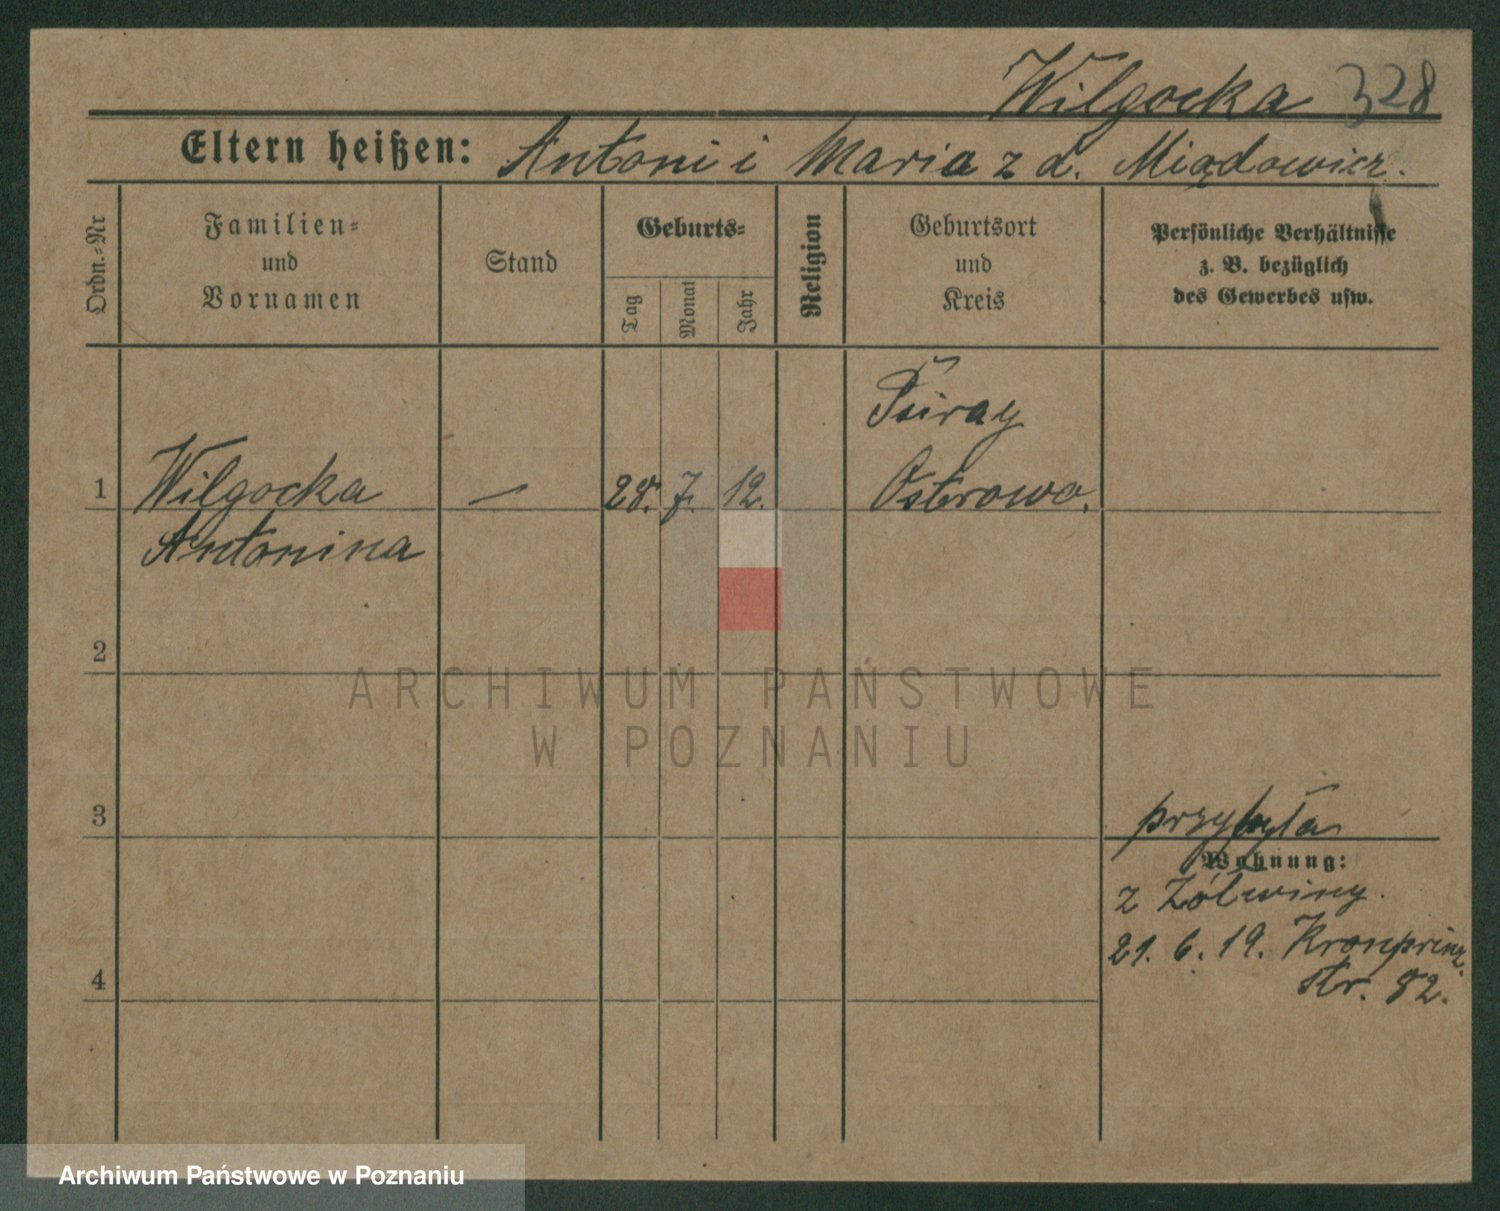 Wilgocka 328
Eltern heißen: Antoni i Maria z d. Miądowicz.
Ordn.=Nr
Familien=
und
Vornamen
Stand
Geburts=
Tag
Monat
Jahr
Religion
Geburtsort
und
Kreis
Persönliche Verhältnisse
z. B. bezüglich
des Gewerbes usw.
1 Wilgocka — 28. 7. 12. Ostrowo.
Antonina
2
3
4
przybyła
Wohnung:
z Żółwiny.
21. 6. 19. Kronprinz.
str. 82.
ARCHIWUM PAŃSTWOWE
W POZNANIU
Archiwum Państwowe w Poznaniu